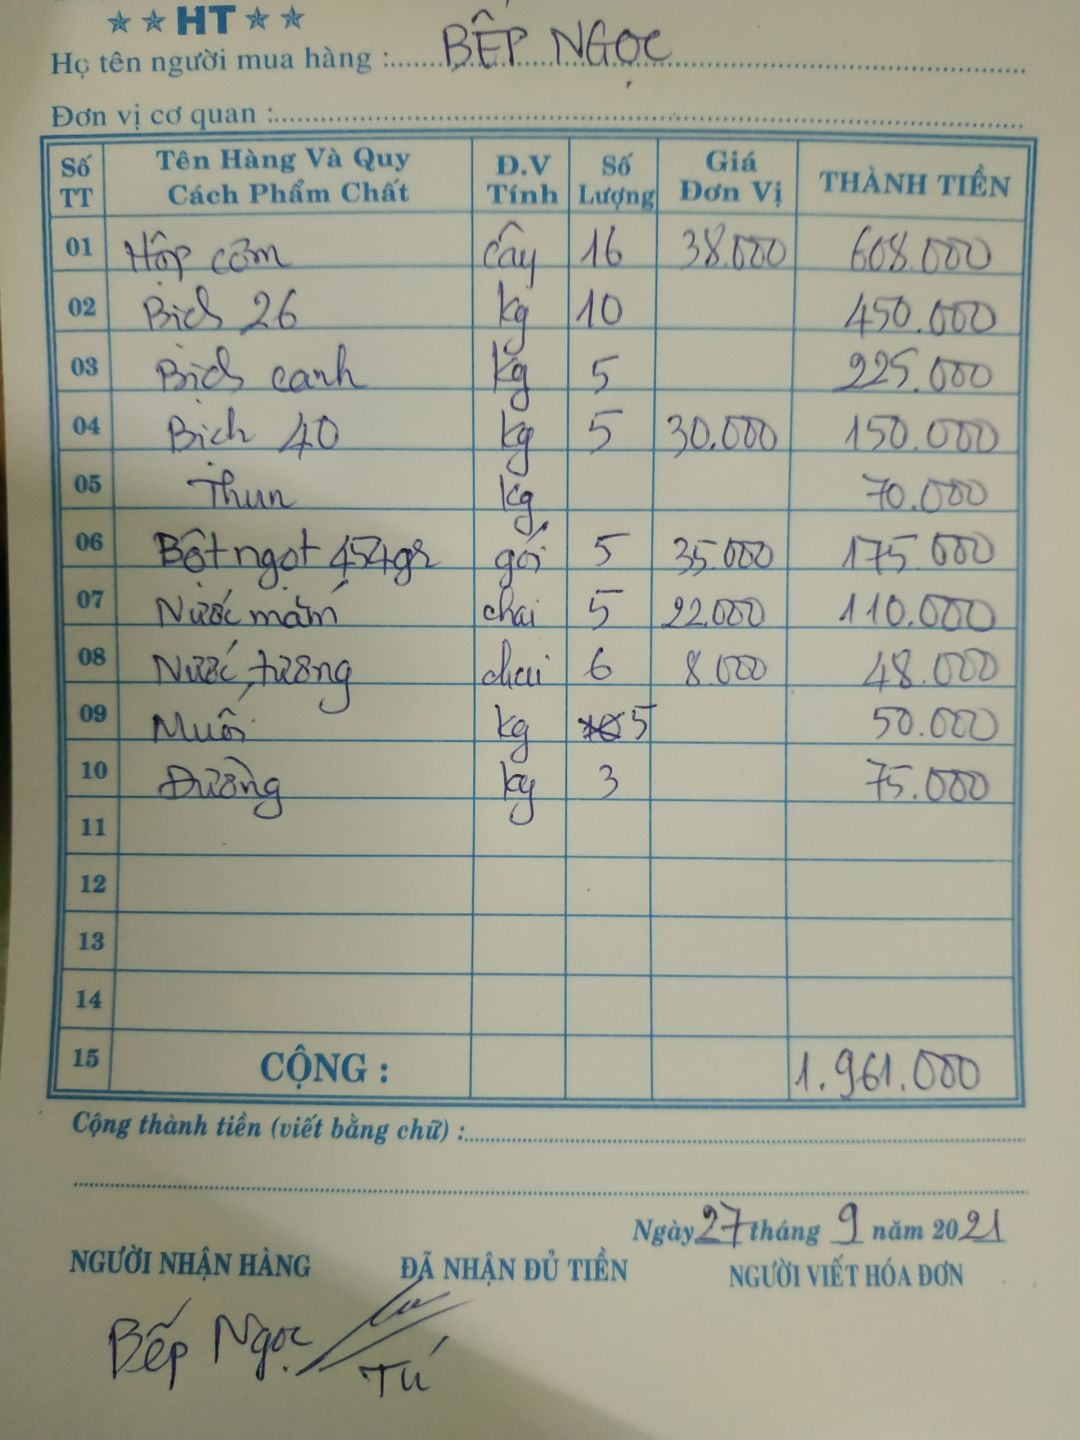 ★ ★ HT ★ ★
Họ tên người mua hàng : BẾP NGỌC
Đơn vị cơ quan :
Số TT Tên Hàng Và Quy Cách Phẩm Chất Đ.V Tính Số Lượng Giá Đơn Vị THÀNH TIỀN
01 Hộp cơm cây 16 38.000 608.000
02 Bịch 26 kg 10 450.000
03 Bịch canh kg 5 225.000
04 Bịch 40 kg 5 30.000 150.000
05 Thun kg 70.000
06 Bột ngọt 454gr gói 5 35.000 175.000
07 Nước mắm chai 5 22.000 110.000
08 Nước tương chai 6 8.000 48.000
09 Muối kg 5 50.000
10 Đường kg 3 75.000
11
12
13
14
15 CỘNG : 1.961.000
Cộng thành tiền (viết bằng chữ) :
Ngày 27 tháng 9 năm 2021
NGƯỜI NHẬN HÀNG ĐÃ NHẬN ĐỦ TIỀN NGƯỜI VIẾT HÓA ĐƠN
Bếp Ngọc
Tú